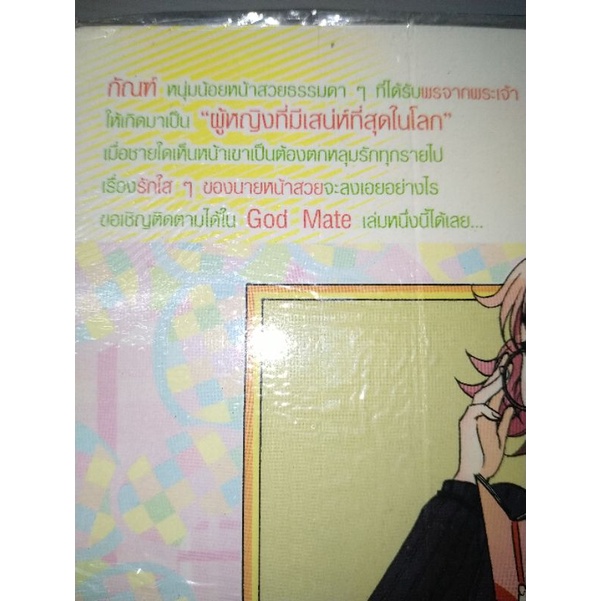 กัณฑ์ หนุ่มน้อยหน้าสวยธรรมดา ๆ ที่ได้รับพรจากพระเจ้า
ให้เกิดมาเป็น “ผู้หญิงที่มีเสน่ห์ที่สุดในโลก”
เมื่อชายใดเห็นหน้าเขาเป็นต้องตกหลุมรักทุกรายไป
เรื่องรักใส ๆ ของนายหน้าสวยจะลงเอยอย่างไร
ขอเชิญติดตามได้ใน God Mate เล่มหนึ่งนี้ได้เลย...